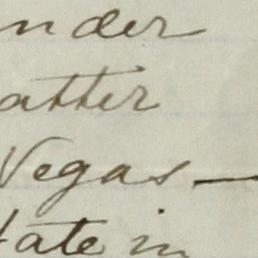 nder
atter
Vegas—
tate in